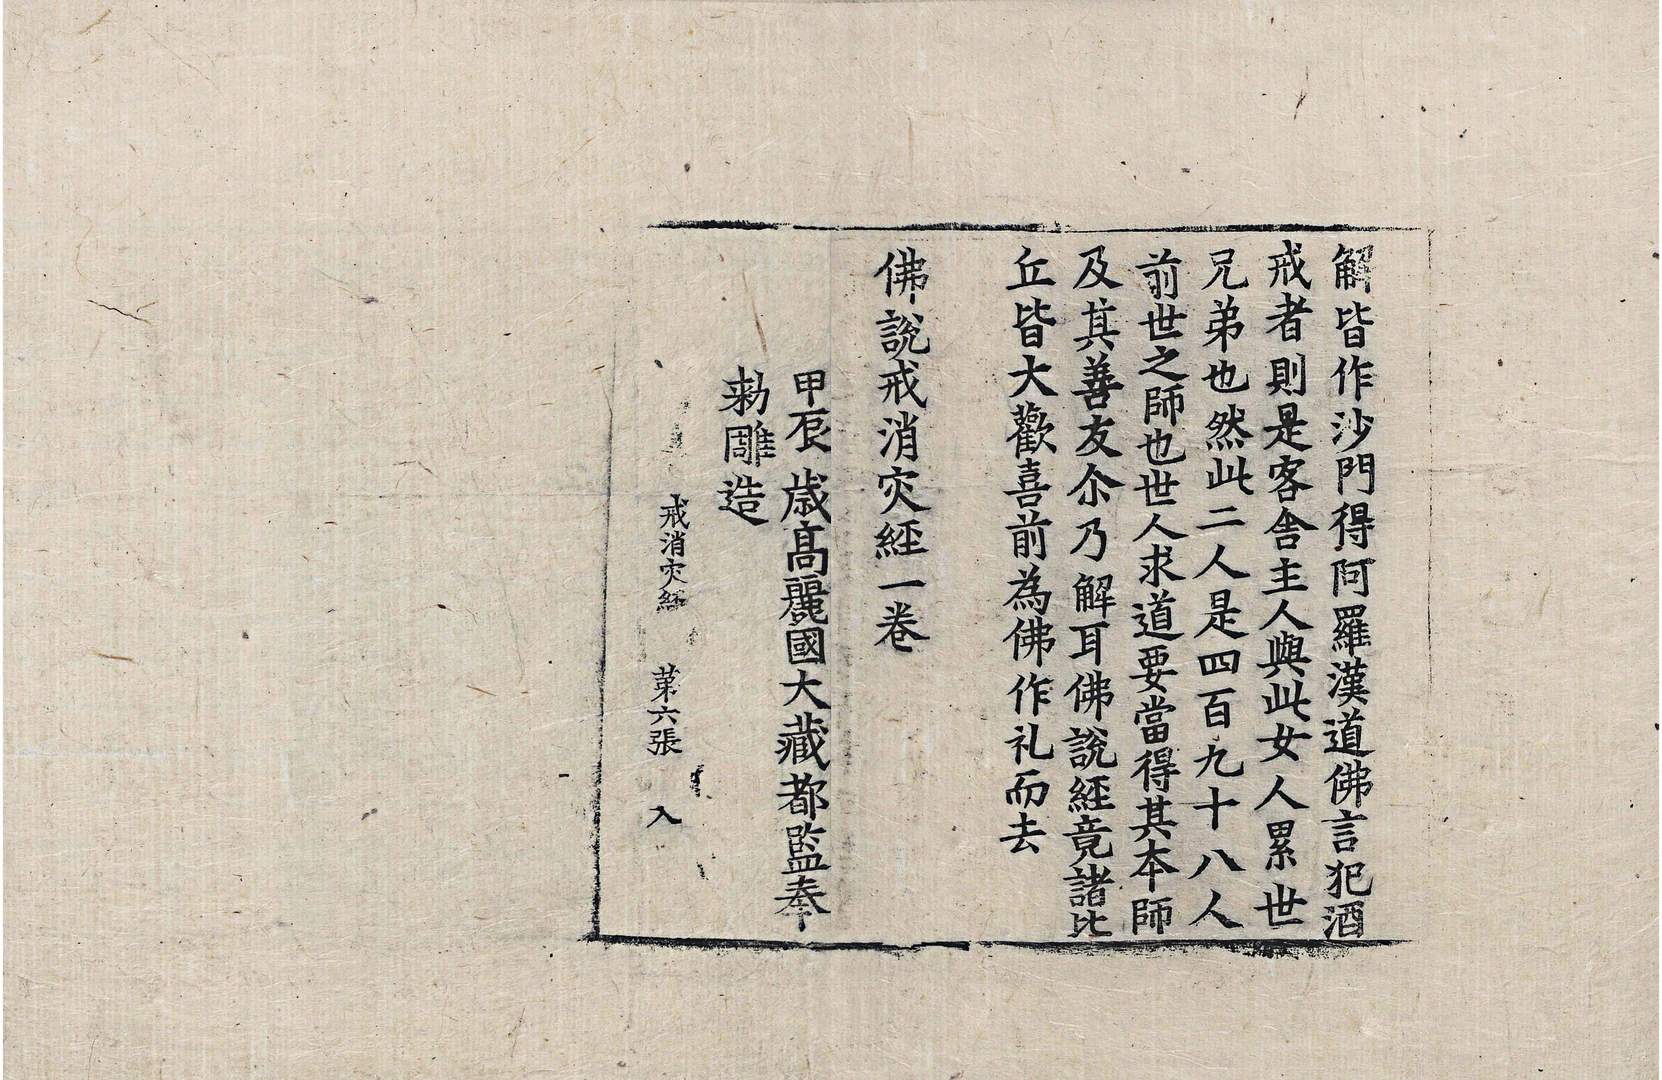 解皆作沙門得阿羅漢道佛言犯酒
戒者則是客舍主人與此女人累世
兄弟也然此二人是四百九十八人
前世之師也世人求道要當得其本師
及其善友尒乃解耳佛說經竟諸比
丘皆大歡喜前為佛作礼而去
佛說戒消灾經一卷
甲辰歲高麗國大藏都監奉
勑雕造
戒消灾經 第六張 入